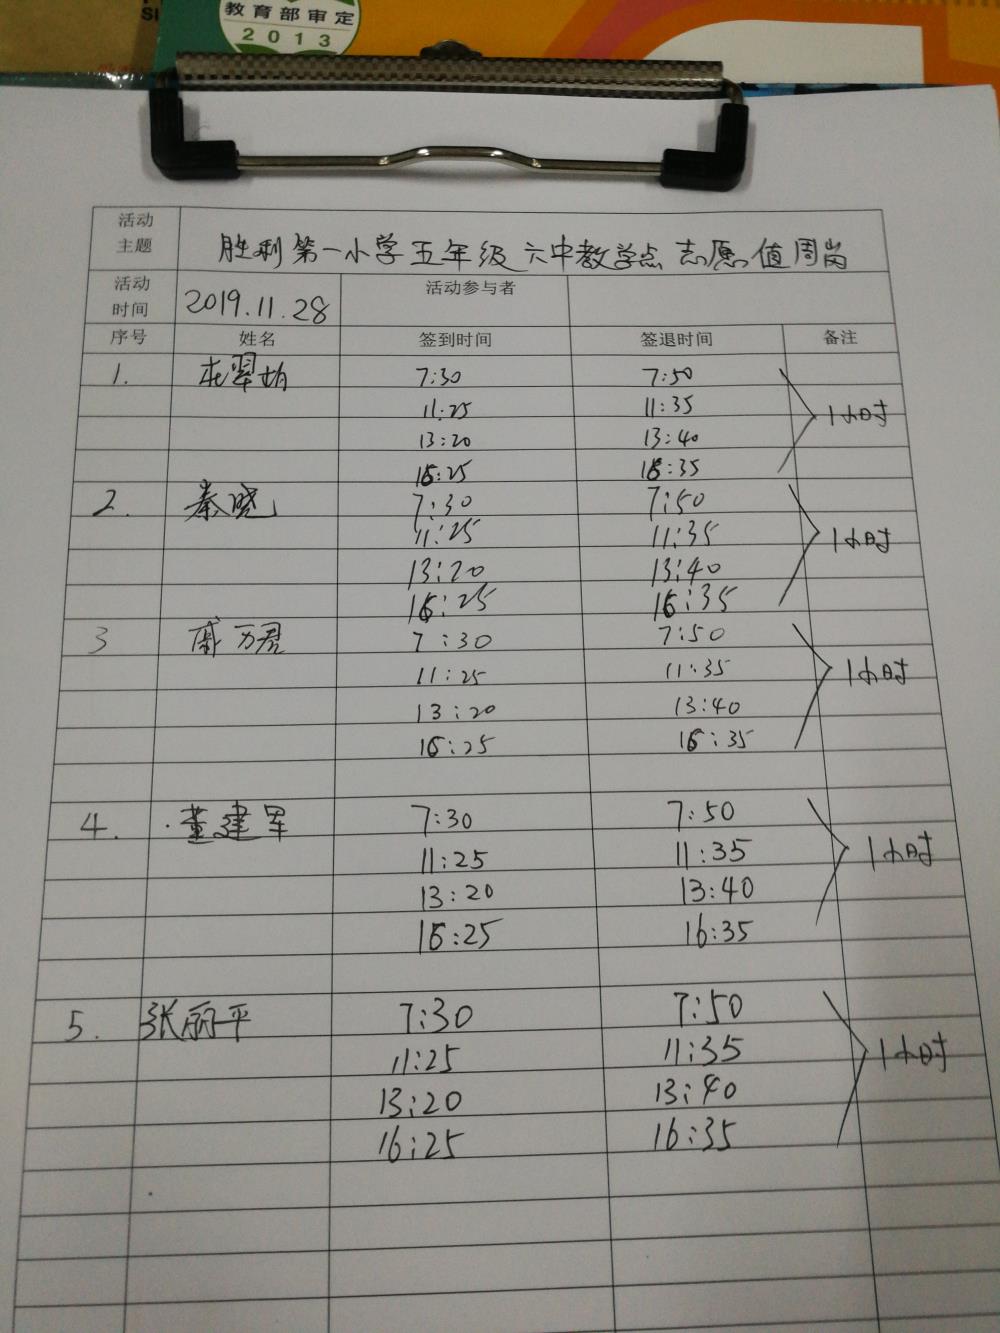 教育部审定
2013
活动主题 胜利第一小学五年级六中教学点志愿值周岗
活动时间 2019.11.28 活动参与者
序号 姓名 签到时间 签退时间 备注
1. 7:30 7:50
11:25 11:35
13:20 13:40 1小时
16:25 16:35
2. 秦晓 7:30 7:50
11:25 11:35
13:20 13:40 1小时
16:25 16:35
3 戚万君 7:30 7:50
11:25 11:35
13:20 13:40 1小时
16:25 16:35
4. 董建军 7:30 7:50
11:25 11:35
13:20 13:40 1小时
16:25 16:35
5. 张丽平 7:30 7:50
11:25 11:35
13:20 13:40 1小时
16:25 16:35